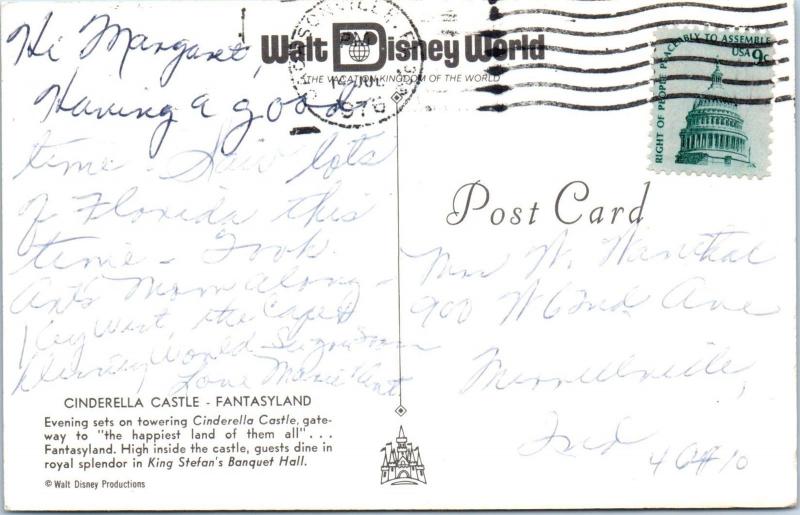 Hi Margaret,
Having a good
time - Saw lots
of Florida this
time - Took
Art's Mom along -
Key West, the Cape &
Disney World. See you soon
Love Marie & Art
Walt Disney World
THE VACATION KINGDOM OF THE WORLD
PM
14 JUL
1976
RIGHT OF PEOPLE PEACEABLY TO ASSEMBLE
USA 9c
Post Card
Mrs W.
900 W 62nd Ave
Merrillville,
Ind
CINDERELLA CASTLE - FANTASYLAND
Evening sets on towering Cinderella Castle, gate-
way to "the happiest land of them all" . . .
Fantasyland. High inside the castle, guests dine in
royal splendor in King Stefan's Banquet Hall.
© Walt Disney Productions